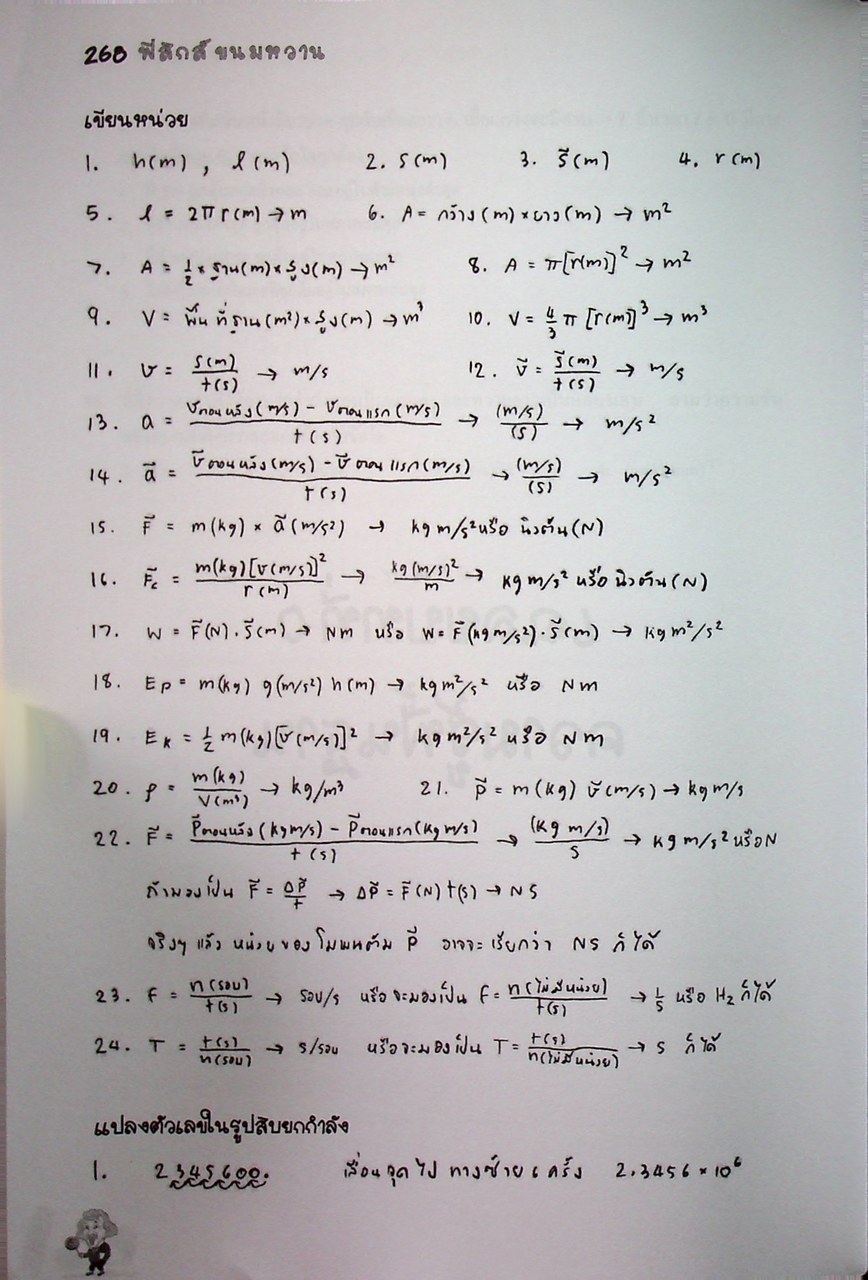 268 ฟิสิกส์ขนมหวาน
เขียนหน่วย
1. h(m) , l(m) 2. s(m) 3. s⃗(m) 4. r(m)
5. l = 2πr(m) → m 6. A = กว้าง(m) × ยาว(m) → m²
7. A = ½ × ฐาน(m) × สูง(m) → m² 8. A = π[r(m)]² → m²
9. V = พื้นที่ฐาน(m²) × สูง(m) → m³ 10. V = 4/3 π [r(m)]³ → m³
11. v = s(m)/t(s) → m/s 12. v⃗ = s⃗(m)/t(s) → m/s
13. a = (vตอนหลัง(m/s) − vตอนแรก(m/s))/t(s) → (m/s)/(s) → m/s²
14. a⃗ = (v⃗ตอนหลัง(m/s) − v⃗ตอนแรก(m/s))/t(s) → (m/s)/(s) → m/s²
15. F⃗ = m(kg) × a⃗(m/s²) → kg m/s² หรือ นิวตัน(N)
16. F⃗c = m(kg)[v(m/s)]²/r(m) → kg(m/s)²/m → kg m/s² หรือ นิวตัน(N)
17. W = F⃗(N) · s⃗(m) → Nm หรือ W = F⃗(kg m/s²) · s⃗(m) → kg m²/s²
18. Ep = m(kg) g(m/s²) h(m) → kg m²/s² หรือ Nm
19. Ek = ½ m(kg)[v⃗(m/s)]² → kg m²/s² หรือ Nm
20. ρ = m(kg)/V(m³) → kg/m³ 21. P⃗ = m(kg) v⃗(m/s) → kg m/s
22. F⃗ = (P⃗ตอนหลัง(kg m/s) − P⃗ตอนแรก(kg m/s))/t(s) → (kg m/s)/s → kg m/s² หรือ N
ถ้ามองเป็น F⃗ = ΔP⃗/t → ΔP⃗ = F⃗(N) t(s) → NS
จริงๆ แล้ว หน่วยของ โมเมนตัม P⃗ อาจจะเรียกว่า NS ก็ได้
23. f = n(รอบ)/t(s) → รอบ/s หรือ จะมองเป็น f = n(ไม่มีหน่วย)/t(s) → 1/s หรือ Hz ก็ได้
24. T = t(s)/n(รอบ) → s/รอบ หรือจะมองเป็น T = t(s)/n(ไม่มีหน่วย) → s ก็ได้
แปลงตัวเลขในรูปสิบยกกำลัง
1. 2345600. เลื่อนจุดไปทางซ้าย 6 ครั้ง 2.3456 × 10⁶